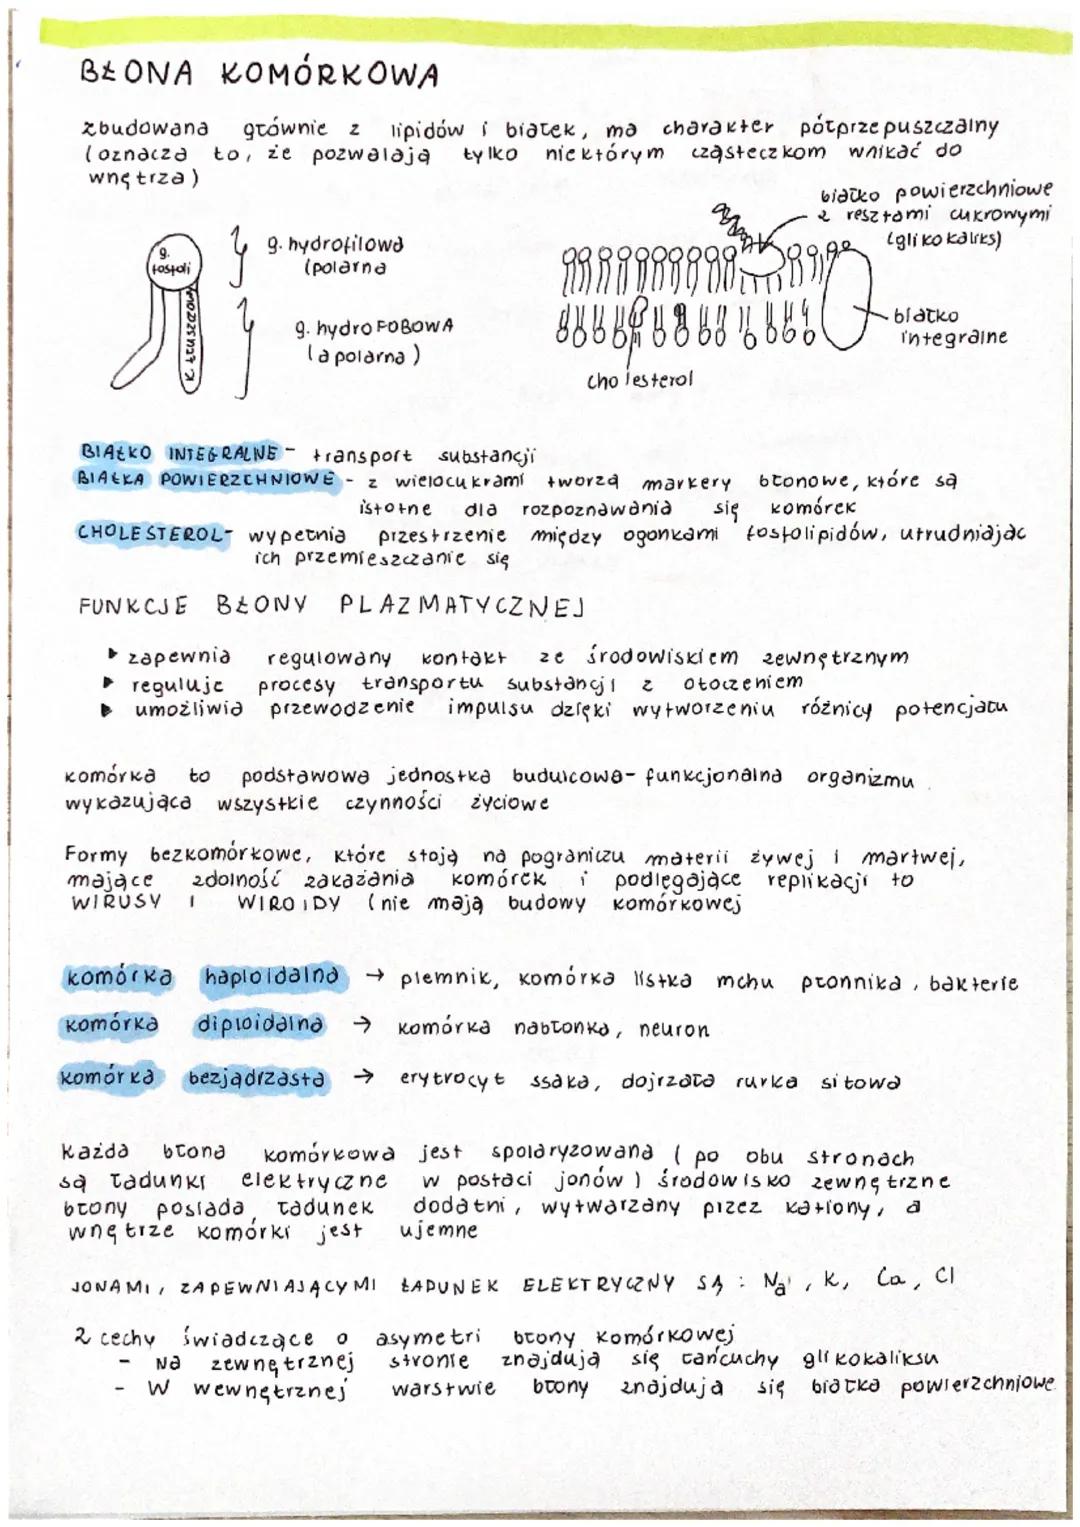 BŁONA KOMÓRKOWA
zbudowana głównie z lipidów i białek, ma charakter półprzepuszczalny
(oznacza to, że pozwalają tylko niektórym cząsteczkom wnikać do
wnętrza)
białko powierzchniowe
z resztami cukrowymi
(glikokaliks)
g.
fosfoli
k. tłuszczowy
g. hydrofilowa
(polarna
g. hydroFOBOWA
(apolarna)
białko
integralne
cholesterol
BIAŁKO INTEGRALNE - transport substancji
BIAŁKA POWIERZCHNIOWE - z wielocukrami tworzą markery błonowe, które są
istotne dla rozpoznawania się komórek
CHOLESTEROL - wypełnia przestrzenie między ogonkami fosfolipidów, utrudniając
ich przemieszczanie się
FUNKCJE BŁONY PLAZMATYCZNEJ
▶ zapewnia regulowany kontakt ze środowiskiem zewnętrznym
▶ reguluje procesy transportu substancji z otoczeniem
▶ umożliwia przewodzenie impulsu dzięki wytworzeniu różnicy potencjału
komórka to podstawowa jednostka budulcowa-funkcjonalna organizmu
wykazująca wszystkie czynności życiowe
Formy bezkomórkowe, które stoją na pograniczu materii żywej i martwej,
mające zdolność zakażania komórek i podlegające replikacji to
WIRUSY I WIROIDY (nie mają budowy komórkowej
komórka haploidalna → plemnik, komórka listka mchu płonnika, bakterie
komórka diploidalna → komórka nabłonka, neuron
komórka bezjądrzasta → erytrocyt ssaka, dojrzała rurka sitowa
Każda błona komórkowa jest spolaryzowana (po obu stronach
są ładunki elektryczne w postaci jonów) środowisko zewnętrzne
błony posiada ładunek dodatni, wytwarzany przez kationy, a
wnętrze komórki jest ujemne
JONAMI, ZAPEWNIAJĄCYMI ŁADUNEK ELEKTRYCZNY SĄ: Na, K, Ca, Cl
2 cechy świadczące o asymetri błony komórkowej
- Na zewnętrznej stronie znajdują się łańcuchy glikokaliksu
- W wewnętrznej warstwie błony znajdują się białka powierzchniowe